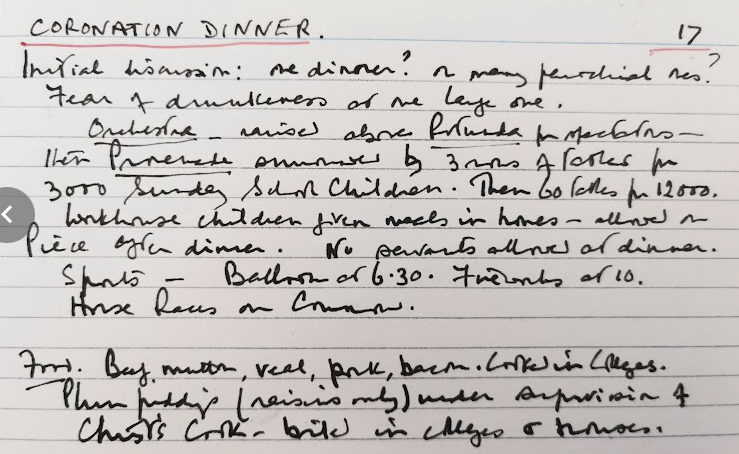 CORONATION DINNER. 17
Initial discussion: one dinner? or many parochial ones?
Fear of drunkeness at one large one.
Orchestra - raised above Rotunda for spectators -
then Promenade surrounded by 3 rows of tables for
3000 Sunday School Children. Then 60 tables for 12000.
Workhouse children given meals in homes - allowed on
Piece after dinner. No servants allowed at dinner.
Sports - Balloon at 6.30. Fireworks at 10.
Horse Races on Common.
Food. Beef, mutton, veal, pork, bacon. Cooked in Colleges.
Plum puddings (raisins only) under supervision of
Christ's Cook - boiled in colleges or houses.